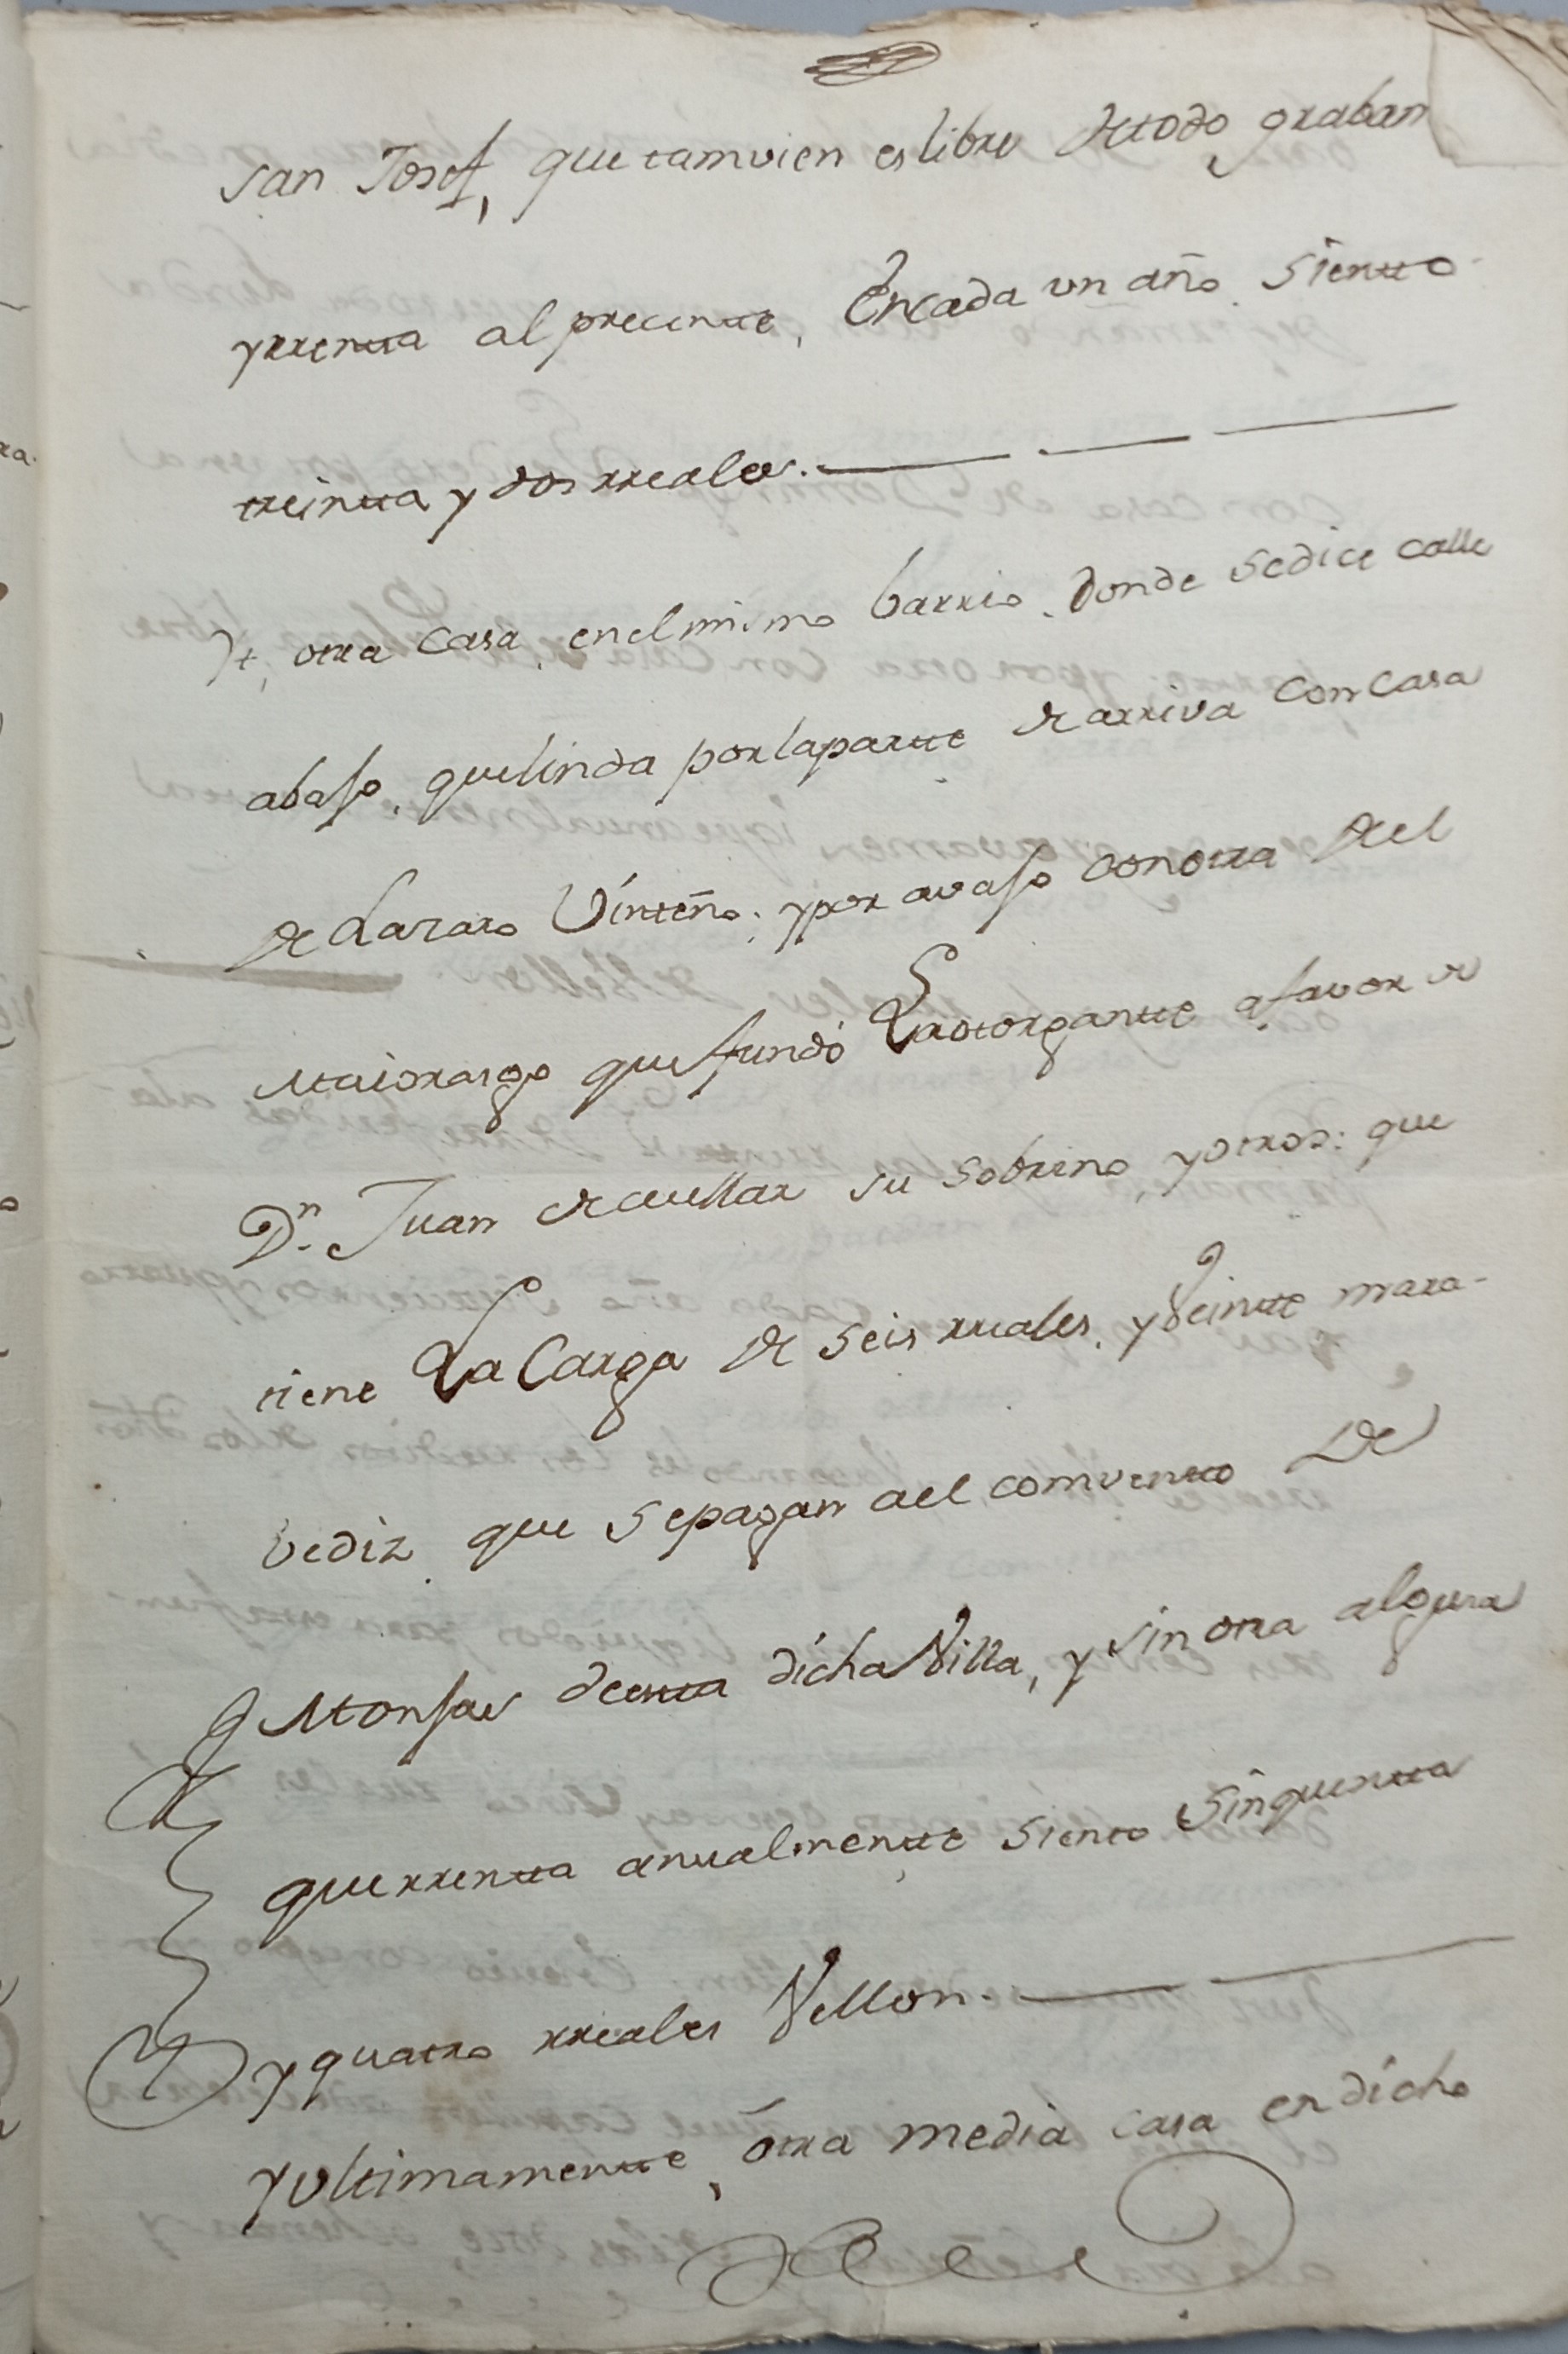 san Josef, que tamvien es libre de todo graban
yrrentta al precentte, En cada un año sientto
treintta y dos rreales.
Yt, otra casa, en el mismo barrio, donde se dice calle
abajo, que linda por la partte de arriva con casa
de Lazaro Vinteño; y por avajo con otra del
Maiorasgo que fundó La otorgantte a favor de
Dn. Juan de Cuellar su sobrino, y otros: que
tiene La Carga de seis rreales, y Veintte mara-
vediz que se pagan ael comventto De
Monjas de estta dicha Villa, y sin otra alguna
que rrentta anualmentte siento Sinquentta
y quatro rreales Vellon.
y ultimamentte, otra media casa en dicho